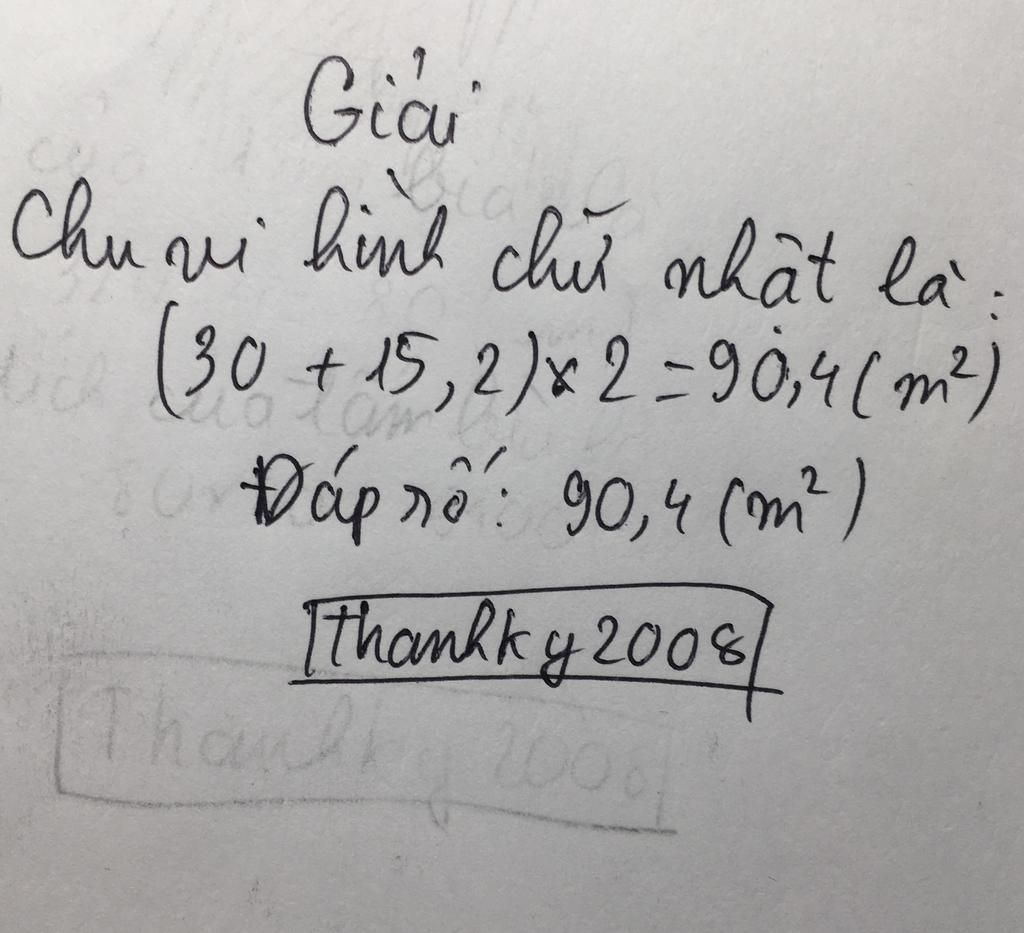 Giải
Chu vi hình chữ nhật là:
(30 + 15,2) x 2 = 90,4 (m²)
Đáp số: 90,4 (m²)
thanhky2008
Thanhky2008